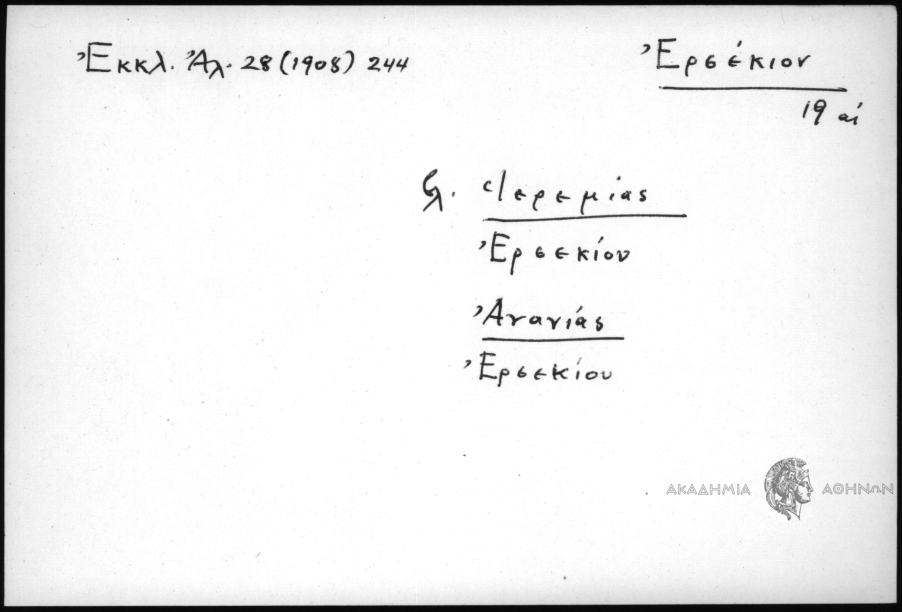 Ἐκκλ. Ἀλ. 28 (1908) 244
Ἐρσέκιον
19 αἰ
βλ. Ἱερεμίας
Ἐρσεκίου
Ἀνανίας
Ἐρσεκίου
ΑΚΑΔΗΜΙΑ ΑΘΗΝΩΝ